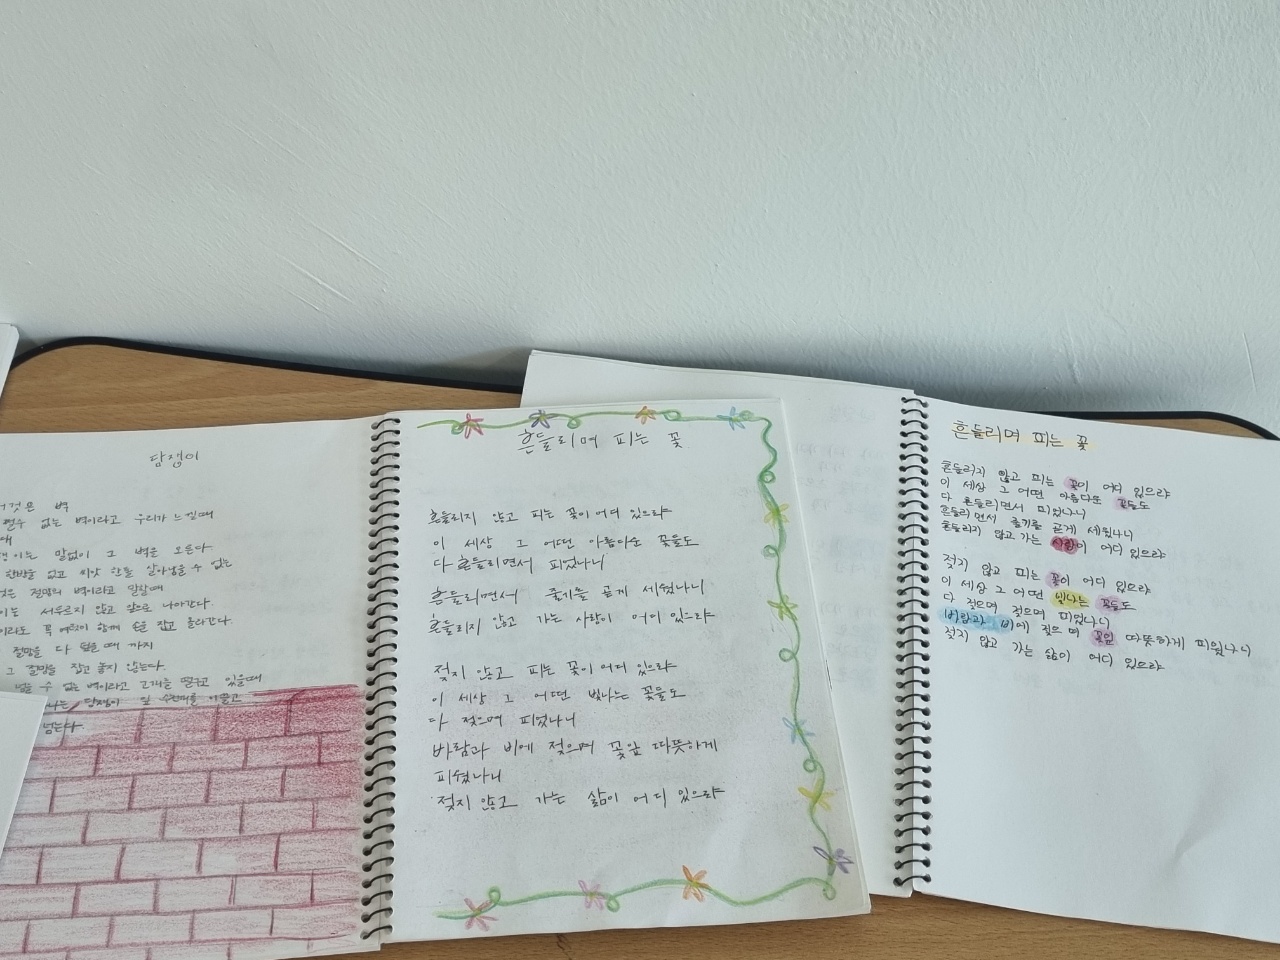 담쟁이
벽
수 없는 벽이라고 우리가 느낄때
말없이 그 벽을 오른다.
한방울 없고 씨앗 한톨 살아남을 수 없는
절망의 벽이라고 말할때
서두르지 않고 앞으로 나아간다.
꼭 여럿이 함께 손을 잡고 올라간다.
절망을 다 덮을 때 까지
그 절망을 잡고 놓지 않는다.
넘을 수 없는 벽이라고 고개를 떨구고 있을때
담쟁이 잎 수천개를 이끌고
넘는다
흔들리며 피는 꽃
흔들리지 않고 피는 꽃이 어디 있으랴
이 세상 그 어떤 아름다운 꽃들도
다 흔들리면서 피었나니
흔들리면서 줄기를 곧게 세웠나니
흔들리지 않고 가는 사랑이 어디 있으랴
젖지 않고 피는 꽃이 어디 있으랴
이 세상 그 어떤 빛나는 꽃들도
다 젖으며 피었나니
바람과 비에 젖으며 꽃잎 따뜻하게
피웠나니
젖지 않고 가는 삶이 어디 있으랴
흔들리며 피는 꽃
흔들리지 않고 피는 꽃이 어디 있으랴
이 세상 그 어떤 아름다운 꽃들도
다 흔들리면서 피었나니
흔들리면서 줄기를 곧게 세웠나니
흔들리지 않고 가는 사랑이 어디 있으랴
젖지 않고 피는 꽃이 어디 있으랴
이 세상 그 어떤 빛나는 꽃들도
다 젖으며 젖으며 피었나니
바람과 비에 젖으며 꽃잎 따뜻하게 피웠나니
젖지 않고 가는 삶이 어디 있으랴